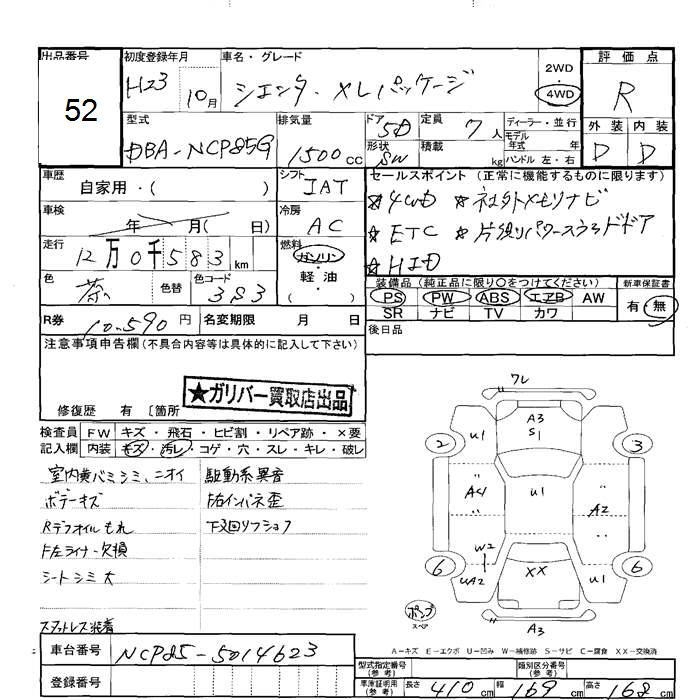 出品番号 初度登録年月 車名・グレード 2WD 評価点
52 H23 10月 シエンタ XLパッケージ 4WD R
型式 排気量 ドア 5D 定員 7人 ディーラー・並行 外装 内装
DBA-NCP85G 1500cc 形状 SW 積載 kg モデル年式 年 D D
ハンドル 左・右
車歴 自家用・( ) シフト IAT セールスポイント (正常に機能するものに限ります)
車検 年 月( 日) 冷房 AC ☆4WD ☆社外メモリナビ
走行 12万0千583km 燃料 ガソリン ☆ETC ☆片側パワースライドドア
軽・油 ( ) ☆HID
色 茶 色替 色コード 3S3 装備品 (純正品に限り○をつけてください) 新車保証書
PS PW ABS エアB AW 有・無
SR ナビ TV カワ
R券 10-590円 名変期限 月 日 後日品
注意事項申告欄(不具合内容等は具体的に記入して下さい)
★ガリバー買取店出品
修復歴 有 〔箇所
検査員 FW キズ・飛石・ヒビ割・リペア跡・×要
記入欄 内装 キズ・汚レ・コゲ・穴・スレ・キレ・破レ
室内黄バミシミ、ニオイ 駆動系異音
ボデーキズ F右インパネ歪
Rデフオイルもれ 下廻リフショフ
F左ライナー欠損
シートシミ大
スタットレス装着
ワレ
A3
S1
2 U1 3
A4 U1 A2
W2
6 UA2 XX U1 6
ポンプ
スペア
A3
A−キズ E−エクボ U−凹み W−補修跡 S−サビ C−腐食 XX−交換済
車台番号 NCP85-5014623
登録番号
型式指定番号(参考) 類別区分番号(参考)
車庫証明用(参考) 長さ 410cm 幅 169cm 高さ 168cm